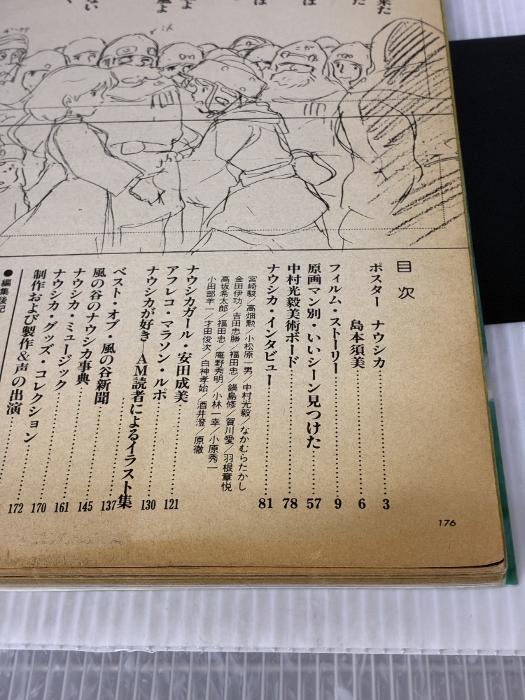 目次
ポスター ナウシカ 3
島本須美 6
フィルム・ストーリー 9
原画マン別・いいシーン見つけた 57
中村光毅美術ボード 78
ナウシカ・インタビュー 81
宮崎駿／高畑勲／小松原一男／中村光毅／なかむらたかし
金田伊功／吉田忠勝／福田忠／鍋島修／賀川愛／羽根章悦
高坂希太郎／福田忠／庵野秀明／小林一幸／小原秀一
小田部羊一／才田俊次／白神孝始／酒井澄／原徹
ナウシカガール・安田成美 121
アフレコ・マラソン・ルポ
ナウシカが好き—AM読者によるイラスト集 130
ベスト・オブ・風の谷新聞 137
風の谷のナウシカ事典 145
ナウシカ・ミュージック 161
ナウシカ・グッズ・コレクション 170
制作および製作&声の出演 172
●編集後記
176